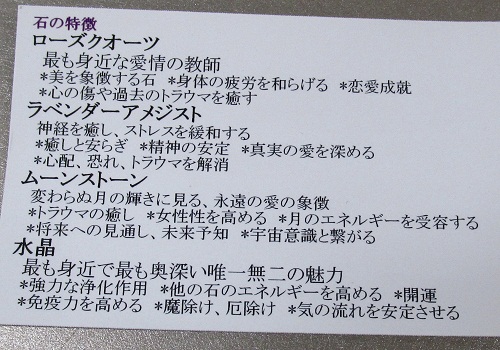 石の特徴
ローズクオーツ
最も身近な愛情の教師
*美を象徴する石 *身体の疲労を和らげる *恋愛成就
*心の傷や過去のトラウマを癒す
ラベンダーアメジスト
神経を癒し、ストレスを緩和する
*癒しと安らぎ *精神の安定 *真実の愛を深める
*心配、恐れ、トラウマを解消
ムーンストーン
変わらぬ月の輝きに見る、永遠の愛の象徴
*トラウマの癒し *女性性を高める *月のエネルギーを受容する
*将来への見通し、未来予知 *宇宙意識と繋がる
水晶
最も身近で最も奥深い唯一無二の魅力
*強力な浄化作用 *他の石のエネルギーを高める *開運
*免疫力を高める *魔除け、厄除け *気の流れを安定させる